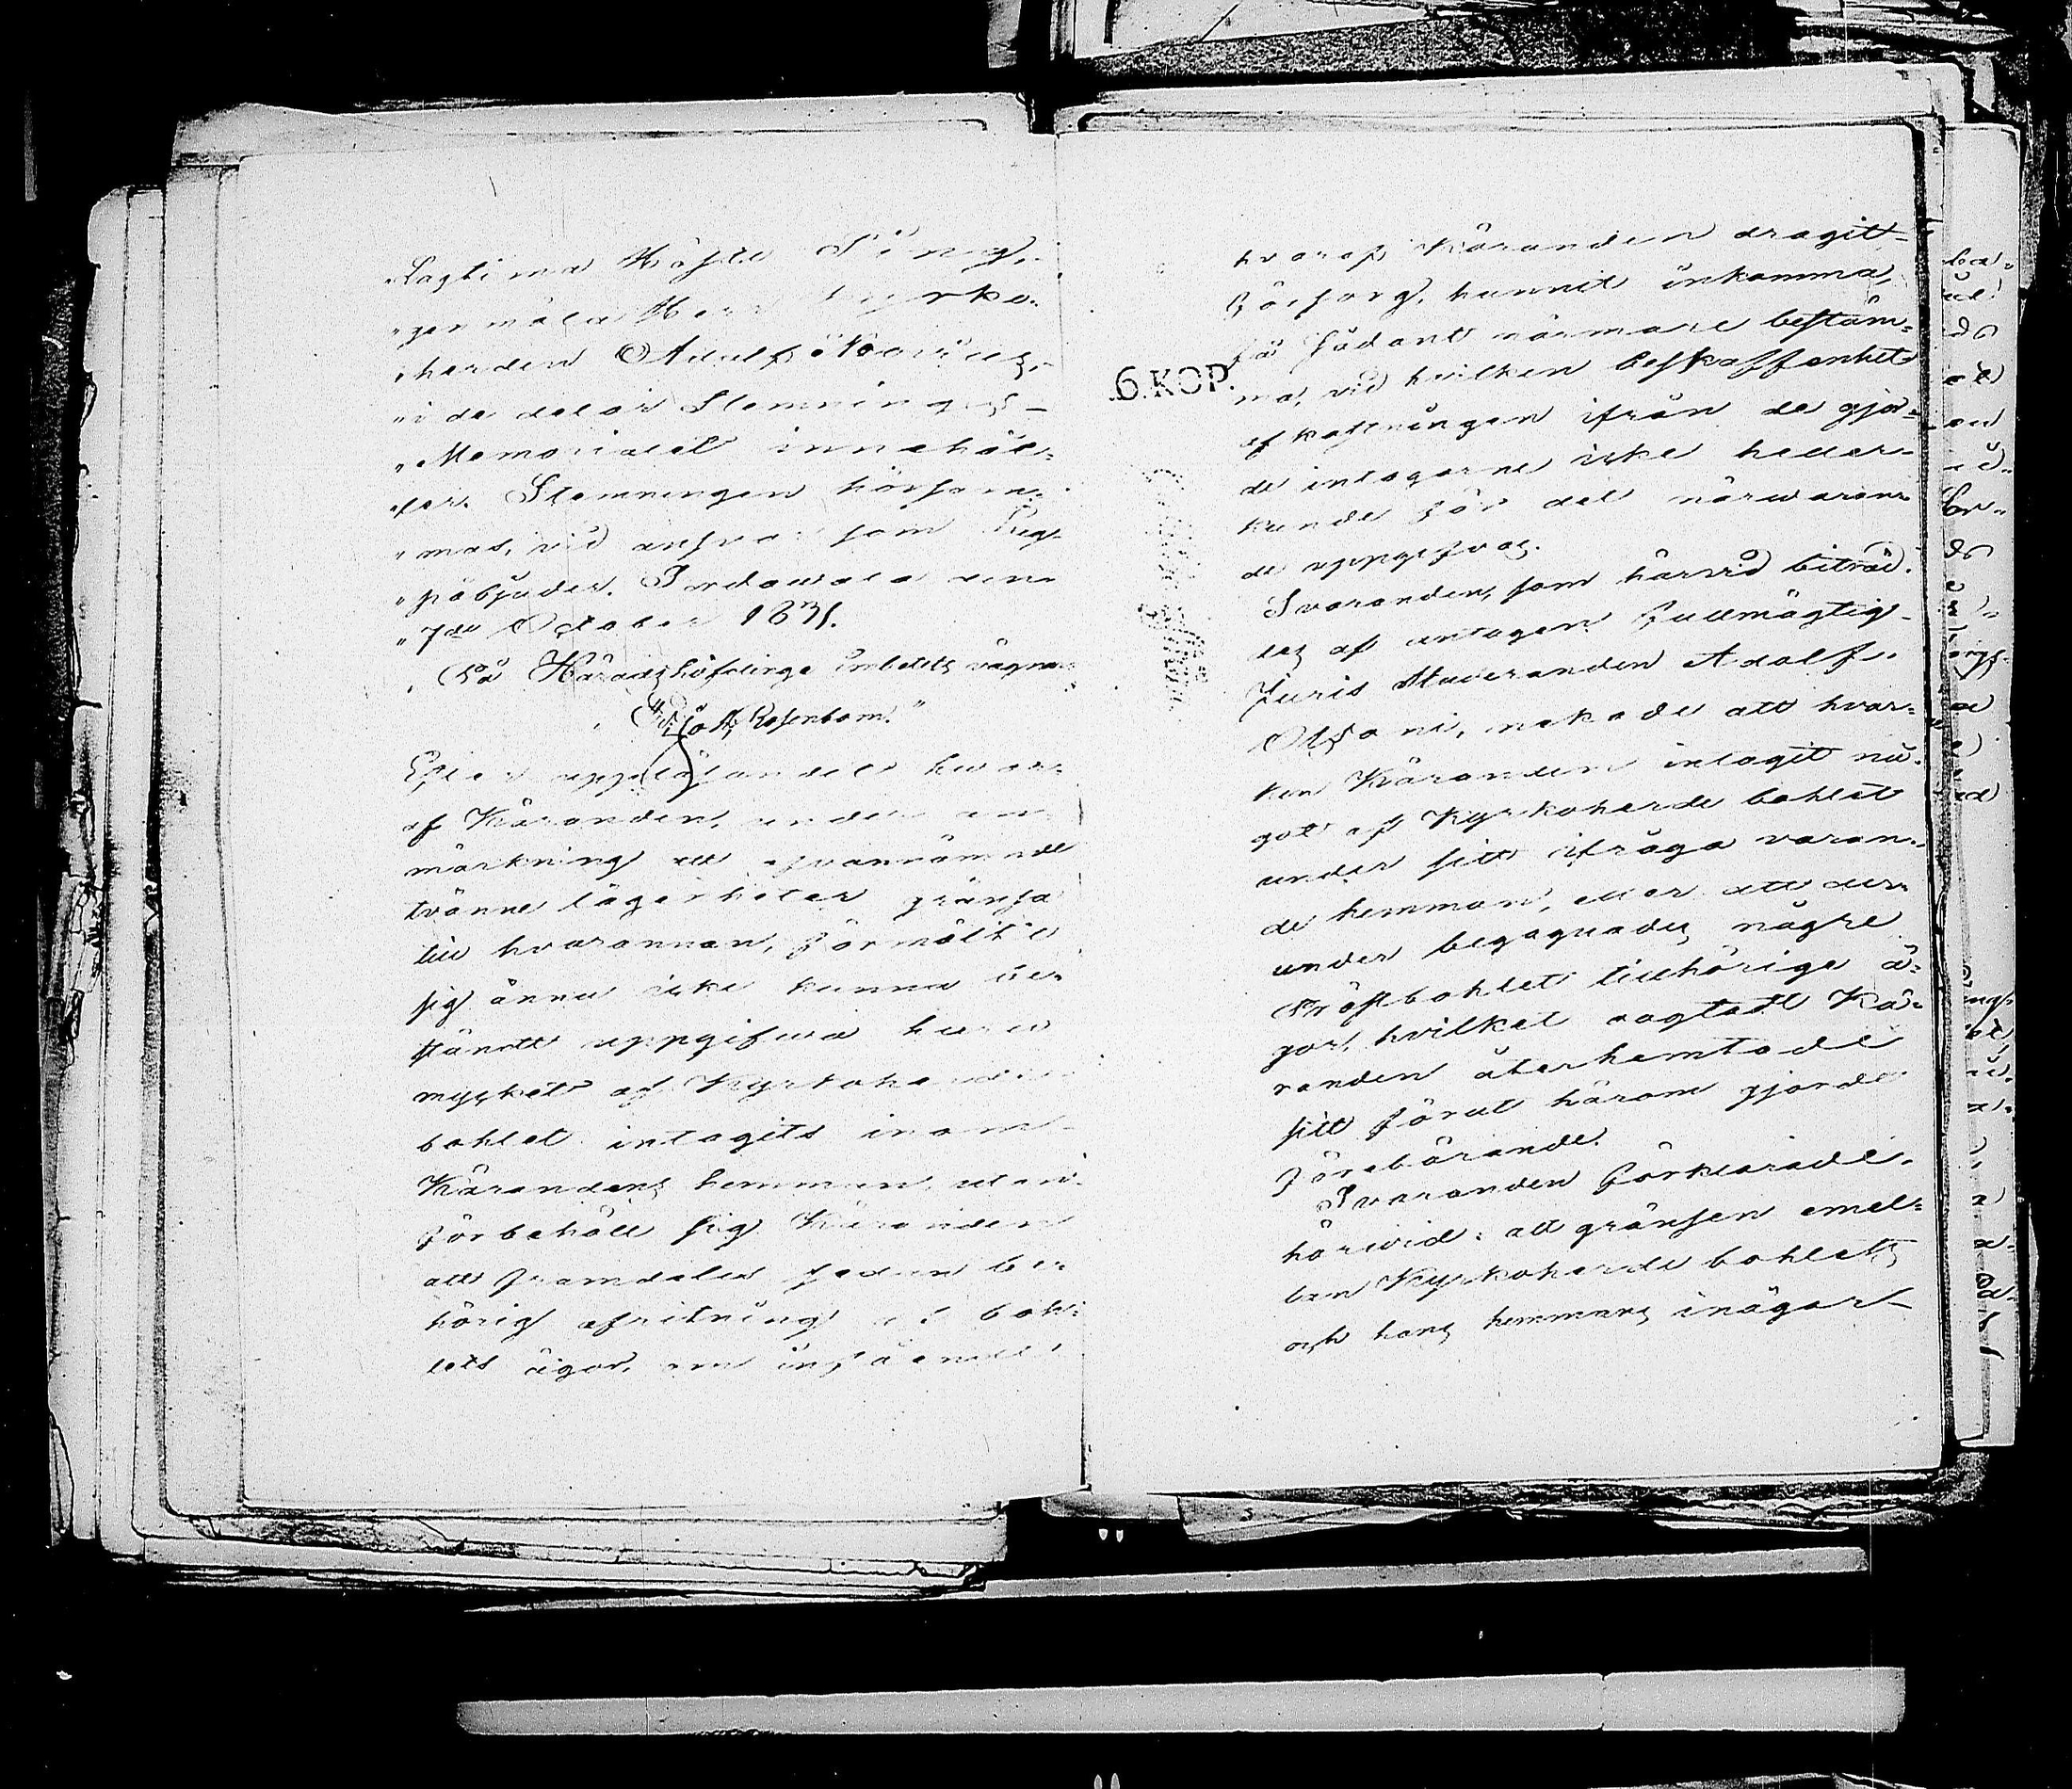 "Lagtima Höste Ting,
"genmäla Herr Kyrko-
"herden Adolf
"i de delar Stemnings-
"Memorialet innehål-
"ler. Stemningen hörsam-
"mas, vid answar som Lag
"påbjuder. Sordawala den
"7de October 1831.
"På Häradshöfdinge embetets vägnar
Rosenbom."
Efter uppläsandet hwar-
af Käranden, under an-
märkning att ofvannämnde
tvänne lägenheter gränsa
till hvarannan, förmälte
sig ännu icke kunna be-
stämdt uppgifwa huru
mycket af Kyrkoherde
bohlet intagits inom
Kärandens hemman, utan
förbehöll sig Käranden
att framdeles sedan be-
hörig afritning af boh-
lets ägor, om
hvaraf Käranden dragit
försorg, hunnit inkomma,
få sådant närmare bestäm-
ma, vid hvilken beskaffenhet
afkastningen ifrån de gjor-
de intagorne icke heller
kunde för det närwaran-
de uppgifvas.
Svaranden, som härvid biträd-
des af antagen Fullmägtig
Juris Studeranden Adolf
nekade att hvar-
ken Käranden intagit nå-
got af Kyrkoherde bohlet
under sitt ifråga varan-
de hemman, eller att der-
under begagnades någre
Pröstbohlet tillhörige ä-
gor, hvilket
randen återhemtade
sitt förut härom gjorde
förebärande.
Svaranden förklarade
härvid: att gränsen emel-
lan Kyrkoherde bohlets
och hans hemmans inägor
6.KOP.